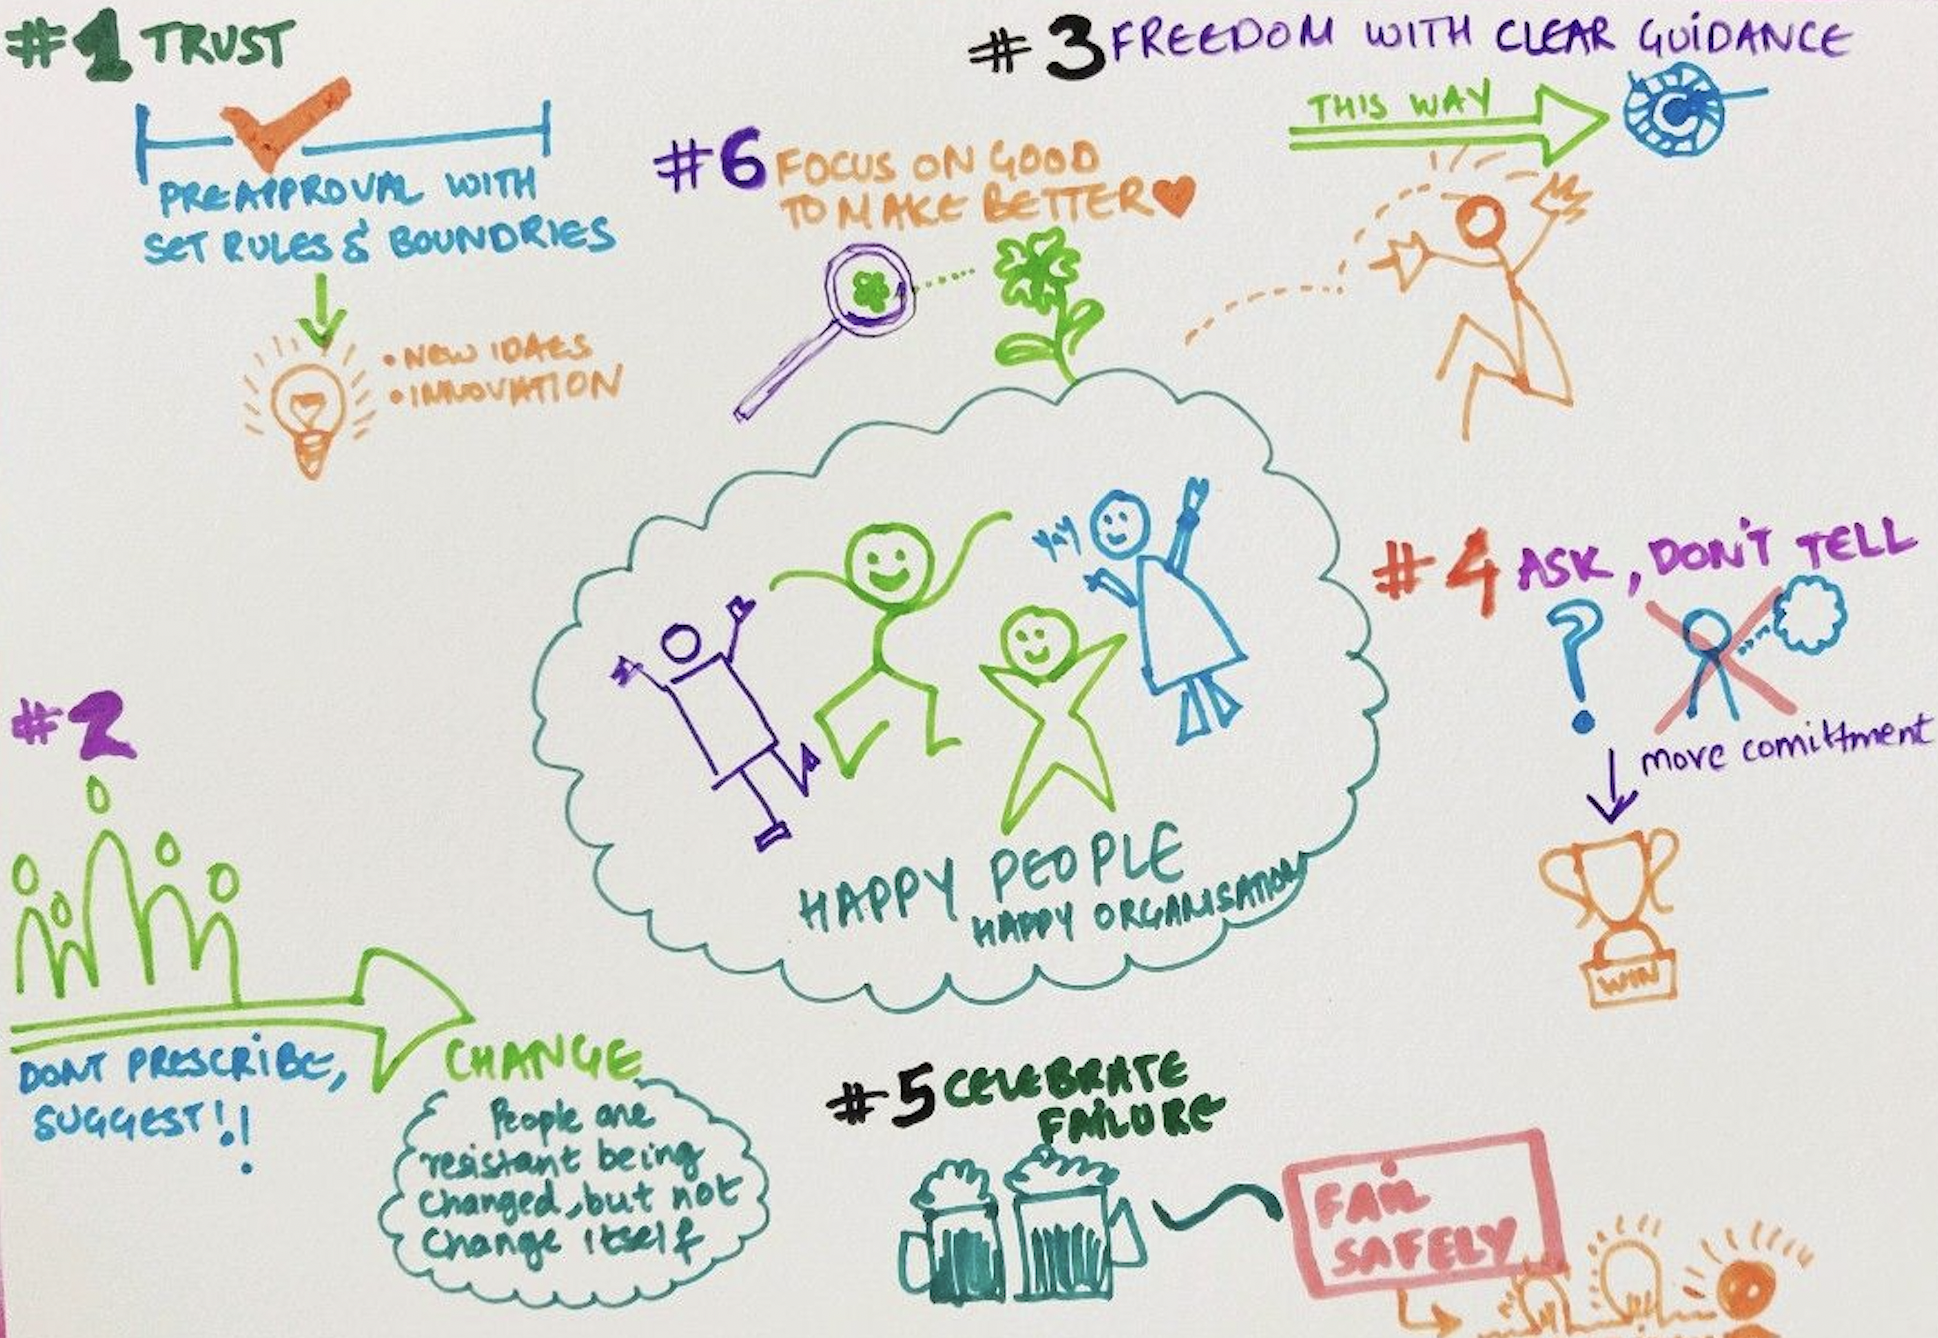 #1 TRUST
PREAPPROVAL WITH
SET RULES & BOUNDRIES
• NEW IDAES
• INNOVATION
#2
DONT PRESCRIBE,
SUGGEST!!
CHANGE
People are
resistant being
changed, but not
change itself
#3 FREEDOM WITH CLEAR GUIDANCE
THIS WAY
#4 ASK, DON'T TELL
move comittment
WIN
#5 CELEBRATE
FAILURE
FAIL
SAFELY
#6 FOCUS ON GOOD
TO MAKE BETTER
YAY
HAPPY PEOPLE
HAPPY ORGANISATION